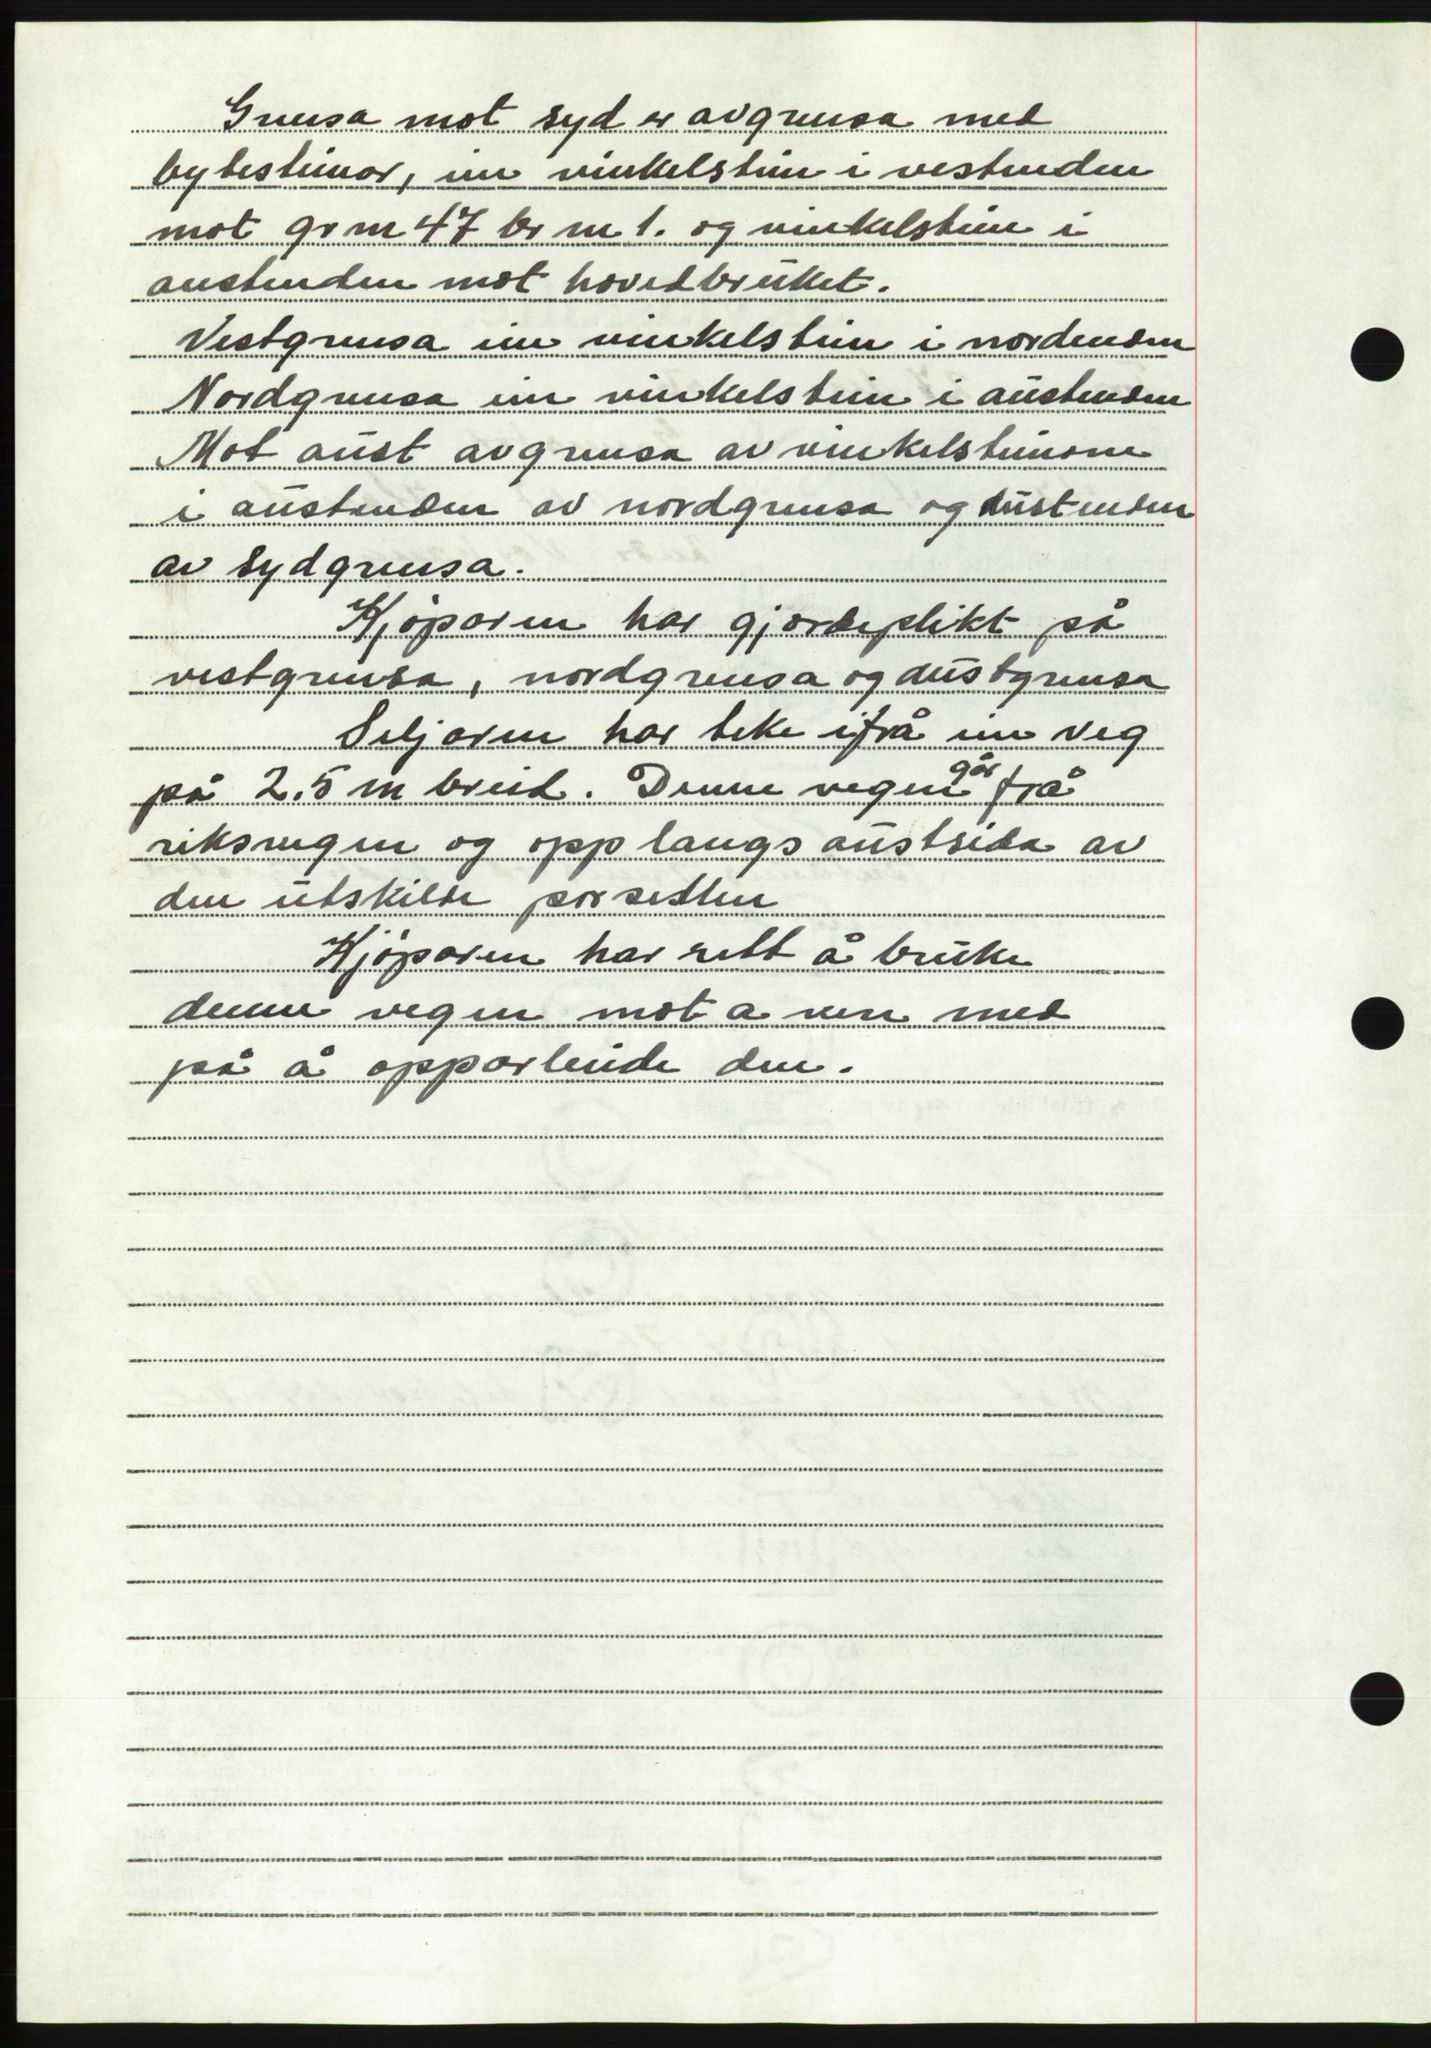 Grensa mot syd er avgrensa med
bytesteinar, ein vinkelstein i vestenden
mot gr nr 47 br nr 1. og vinkelstein i
austenden mot hovedbruket.
Vestgrensa ein vinkelstein i nordenden
Nordgrensa ein vinkelstein i austenden
Mot aust avgrensa av vinkelsteinane
i austenden av nordgrensa og austenden
av sydgrensa.
Kjøparen har gjerdeplikt på
vestgrensa, nordgrensa og austgrensa
Seljaren har teke ifrå ein veg
på 2.5 m breid. Denne vegen går frå
riksvegen og opp langs austsida av
den utskilde parsellen
Kjøparen har rett å bruke
denne vegen mot a vere med
på å opparbeide den.